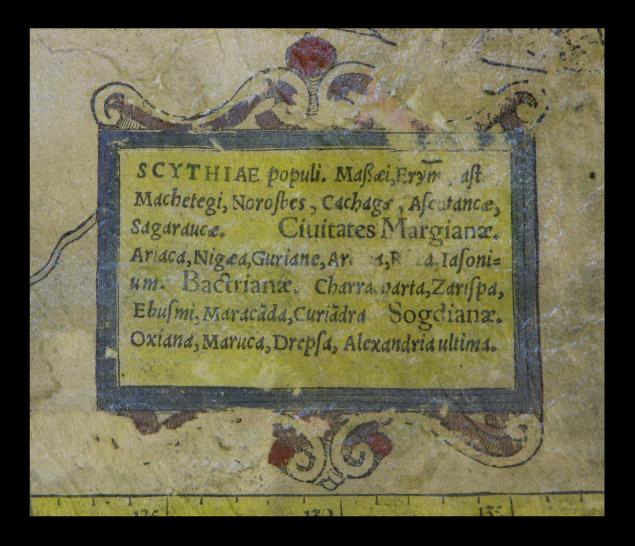 SCYTHIAE populi. Maßæi, Erym̅, ast
Machetegi, Norosbes, Cachagæ, Ascotancæ,
Sagaraucæ. Ciuitates Margianæ.
Ariaca, Nigæa, Guriane, Iasoni=
um. Bactrianæ. Zarispa,
Ebusmi, Maracãda, Curiãdra Sogdianæ.
Oxiana, Maruca, Drepsa, Alexandria ultima.
125 130 135